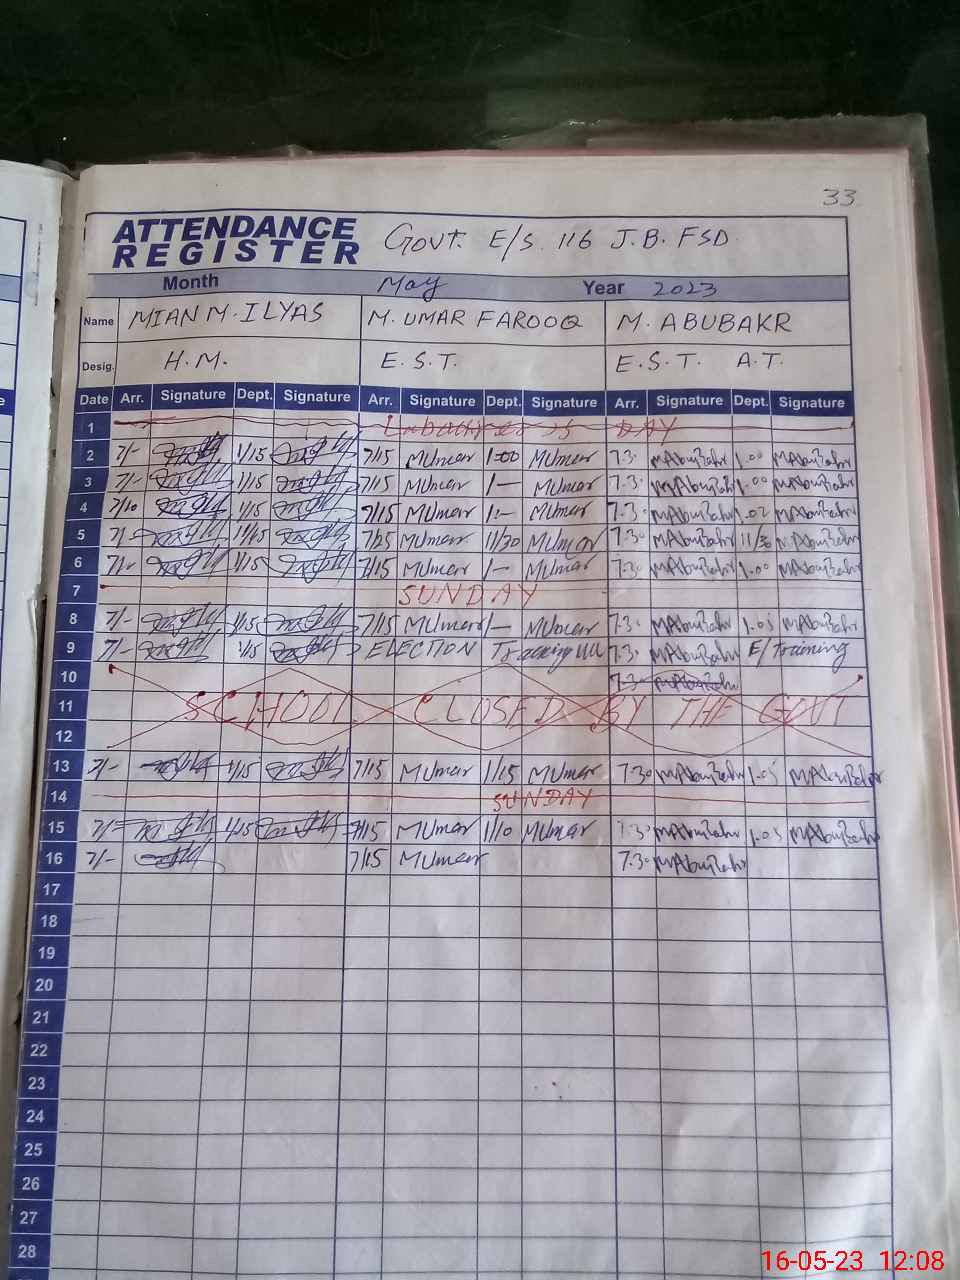 33
ATTENDANCE REGISTER GOVT. E/S. 116 J.B. FSD.
Month May Year 2023
Name MIAN M. ILYAS M. UMAR FAROOQ M. ABUBAKR
Desig. H.M. E.S.T. E.S.T. A.T.
Date Arr. Signature Dept. Signature Arr. Signature Dept. Signature Arr. Signature Dept. Signature
1 DAY
2 7/- 1/15 7/15 MUmar 1-00 MUmar 7.30 MAbuBakr 1.00 MAbuBakr
3 7/- 1/15 7/15 MUmar 1- MUmar 7.30 MAbuBakr 1.00 MAbuBakr
4 7/10 1/15 7/15 MUmar 1- MUmar 7.30 MAbuBakr 1.02 MAbuBakr
5 7/- 7/25 MUmar 11/30 MUmar 7.30 MAbuBakr 11/30 MAbuBakr
6 7/- 1/15 7/15 MUmar 1- MUmar 7.30 MAbuBakr 1.00 MAbuBakr
7 SUNDAY
8 7/- 1/15 7/15 MUmar 1- MUmar 7.30 MAbuBakr 1.05 MAbuBakr
9 7/- 1/15 ELECTION 7.30 MAbuBakr E/Training
10 7.30 MAbuBakr
11 SCHOOL CLOSED BY THE GOVT
12
13 7/- 1/15 7/15 MUmar 1/15 MUmar 7.30 MAbuBakr 1.05 MAbuBakr
14 SUNDAY
15 7/- 1/15 7/15 MUmar 1/10 MUmar 7.30 MAbuBakr 1.05 MAbuBakr
16 7/- 7/15 MUmar 7.30 MAbuBakr
17
18
19
20
21
22
23
24
25
26
27
28
16-05-23 12:08